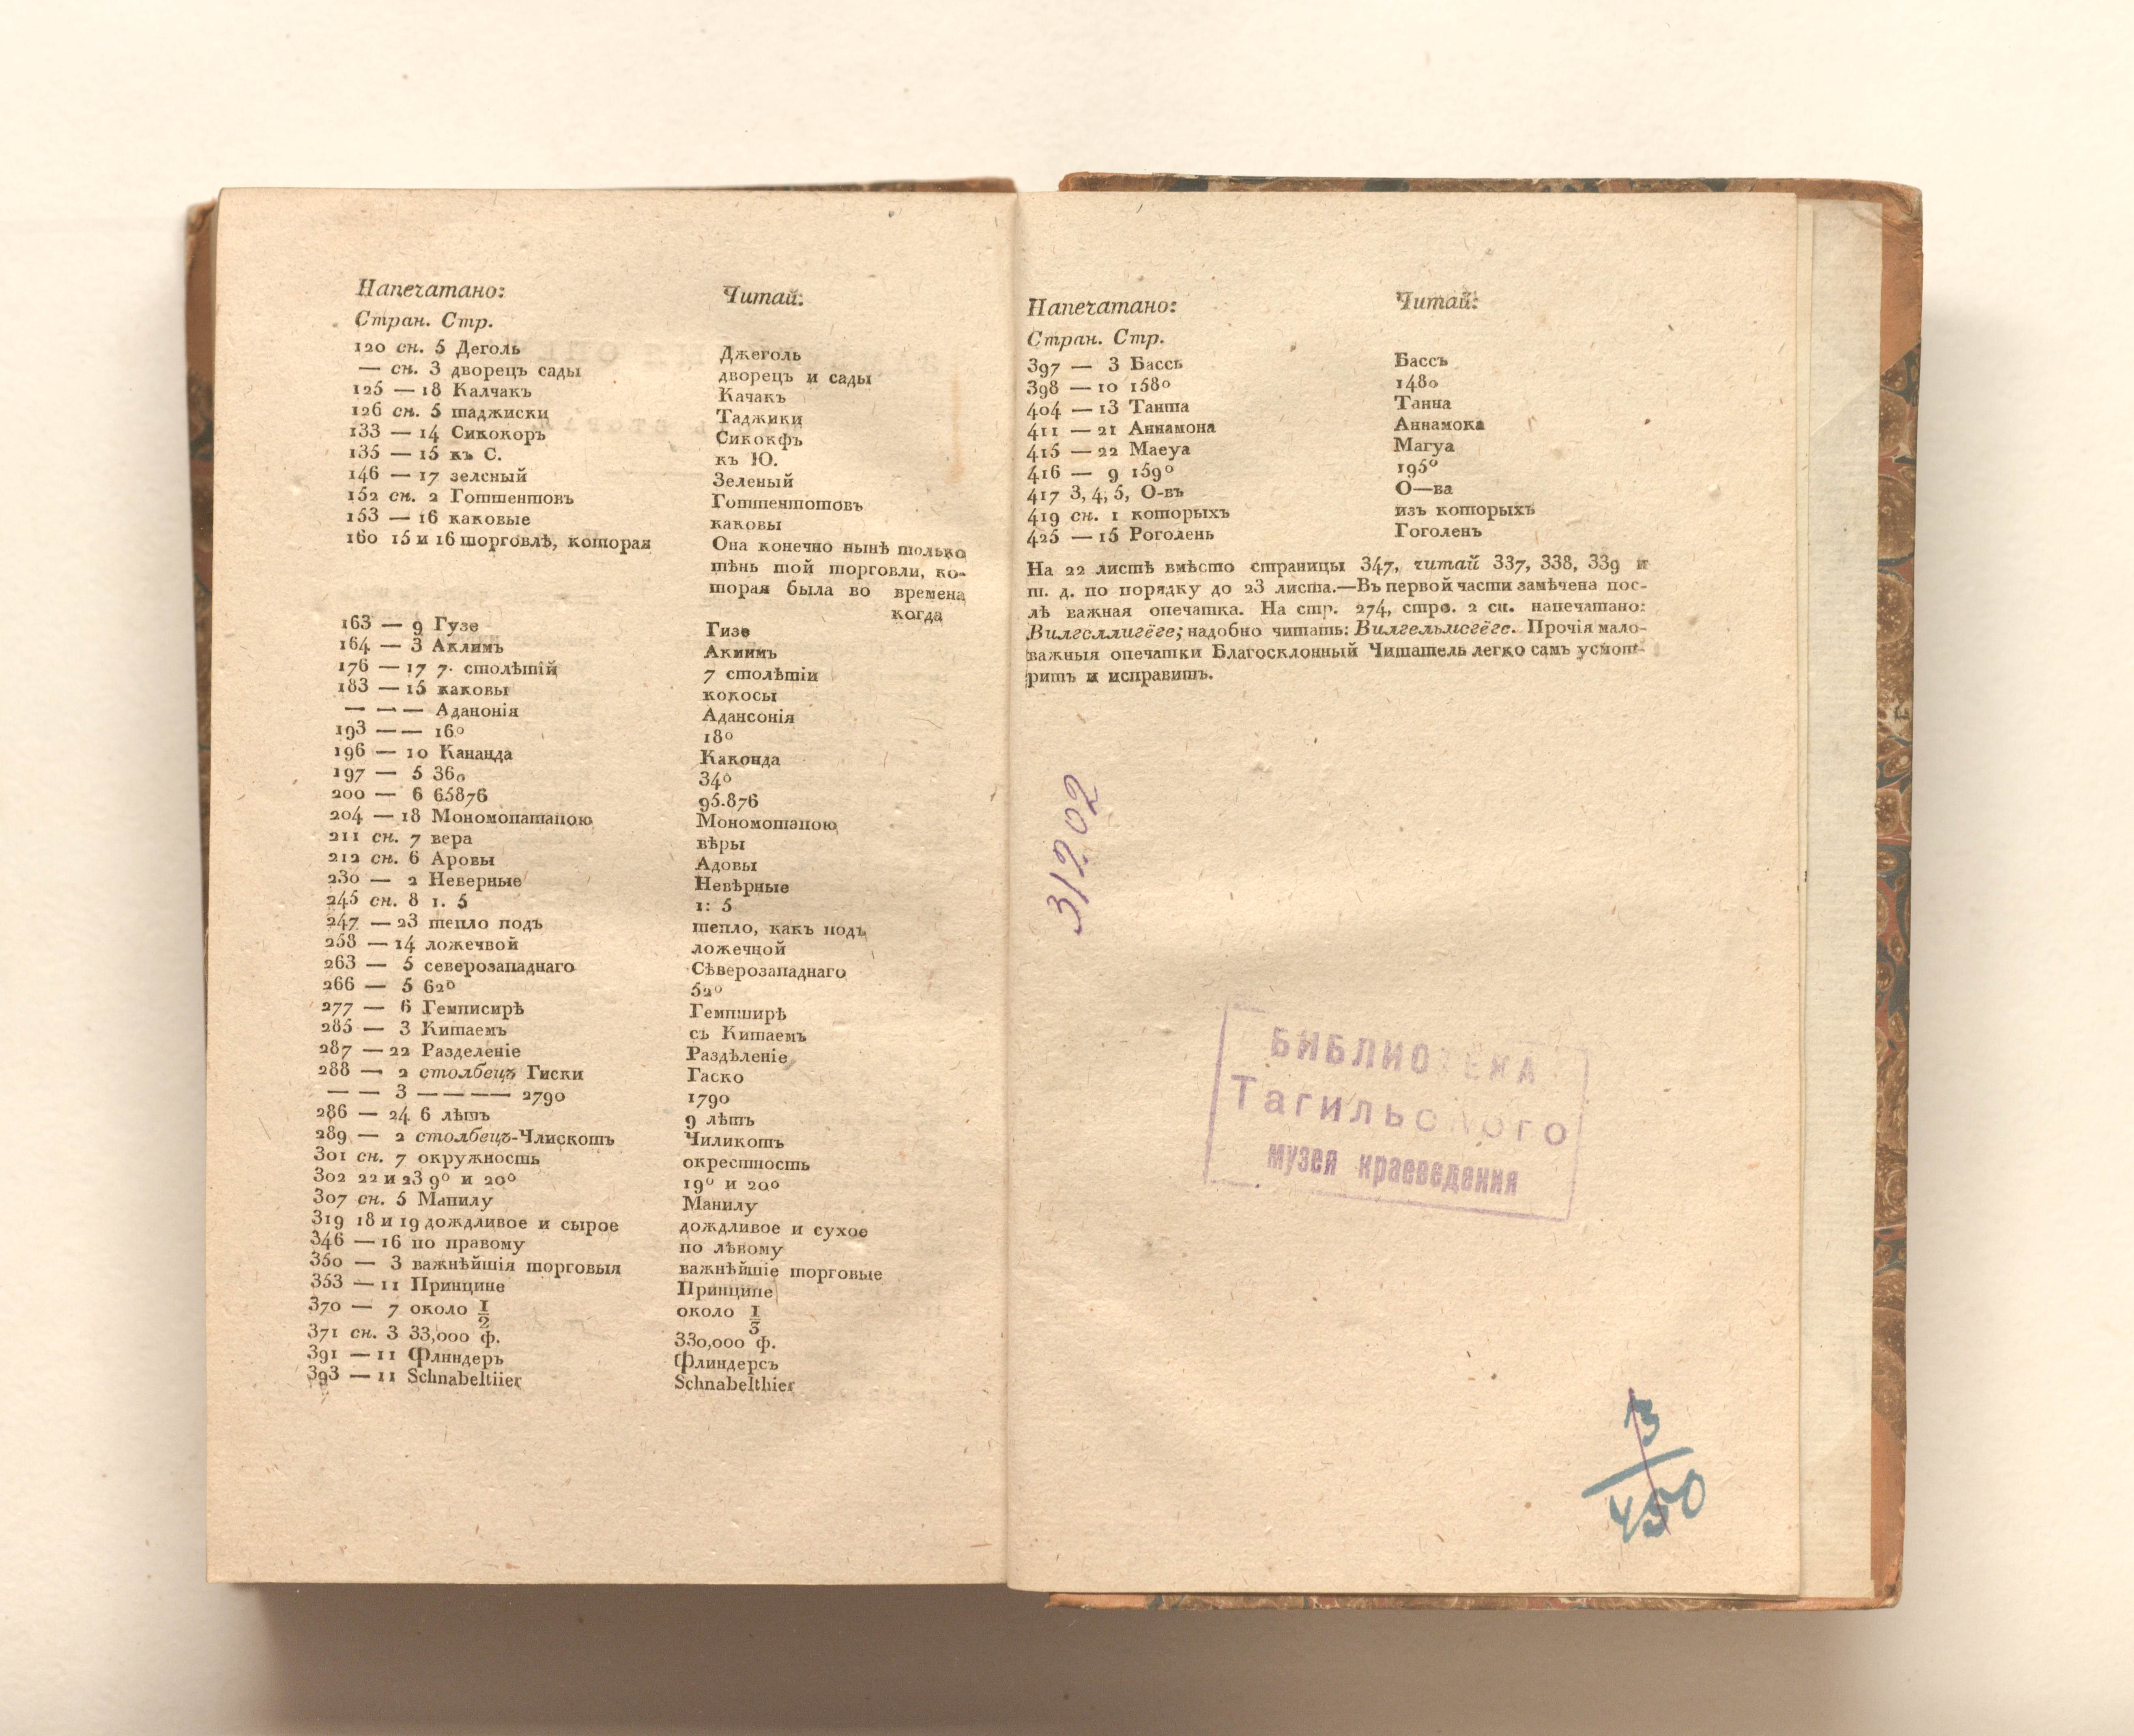 Напечатано: Читай:
Стран. Стр.
120 сн. 5 Деголь Джеголь
— сн. 3 дворецъ сады дворецъ и сады
125 — 18 Калчакъ Качакъ
126 сн. 5 таджиски Таджики
133 — 14 Сикокоръ Сикокфъ
135 — 15 къ С. къ Ю.
146 — 17 зелсный Зеленый
152 сн. 2 Готтентовъ Готтентотовъ
153 — 16 каковые каковы
160 15 и 16 торговлѣ, которая Она конечно нынѣ только
тѣнь той торговли, ко-
торая была во времена
когда
163 — 9 Гузе Гизе
164 — 3 Аклимъ Акиимъ
176 — 17 7. столѣтій 7 столѣтіи
183 — 15 каковы кокосы
— — — Аданонія Адансонія
193 — — 16° 18°
196 — 10 Кананда Каконда
197 — 5 36° 34°
200 — 6 65876 95.876
204 — 18 Мономопатапою Мономотапою
211 сн. 7 вера вѣры
212 сн. 6 Аровы Адовы
230 — 2 Неверные Невѣрные
245 сн. 8 1. 5 1: 5
247 — 23 тепло подъ тепло, какъ подъ
258 — 14 ложечвой ложечной
263 — 5 северозападнаго Сѣверозападнаго
266 — 5 62° 52°
277 — 6 Гемписирѣ Гемпширѣ
285 — 3 Китаемъ съ Китаемъ
287 — 22 Разделеніе Раздѣленіе
288 — 2 столбецъ Гиски Гаско
— — 3 — — — — 2790 1790
286 — 24 6 лѣтъ 9 лѣтъ
289 — 2 столбецъ-Члискотъ Чиликотъ
301 сн. 7 окружность окрестность
302 22 и 23 9° и 20° 19° и 20°
307 сн. 5 Мапилу Манилу
319 18 и 19 дождливое и сырое дождливое и сухое
346 — 16 по правому по лѣвому
350 — 3 важнѣйшія торговыя важнѣйшіе торговые
353 — 11 Принцине Принципе
370 — 7 около 1/2 около 1/3
371 сн. 3 33,000 ф. 330,000 ф.
391 — 11 Флиндеръ Флиндерсъ
393 — 11 Schnabeltiier Schnabelthier
Напечатано: Читай:
Стран. Стр.
397 — 3 Бассь Бассъ
398 — 10 158° 148°
404 — 13 Танта Танна
411 — 21 Аннамона Аннамока
415 — 22 Маеуа Магуа
416 — 9 159° 195°
417 3, 4, 5, О-въ О—ва
419 сн. 1 которыхъ изъ которыхъ
425 — 15 Роголень Гоголенъ
На 22 листѣ вмѣсто страницы 347, читай 337, 338, 339 и
т. д. по порядку до 23 листа.—Въ первой части замѣчена пос-
лѣ важная опечатка. На стр. 274, стро. 2 сн. напечатано:
Вилгсллигёге; надобно читать: Вилгельмсгёге. Прочія мало-
важныя опечатки Благосклонный Читатель легко самъ усмот-
ритъ и исправитъ.
31202
БИБЛИОТЕКА
Тагильского
музея краеведения
3
450